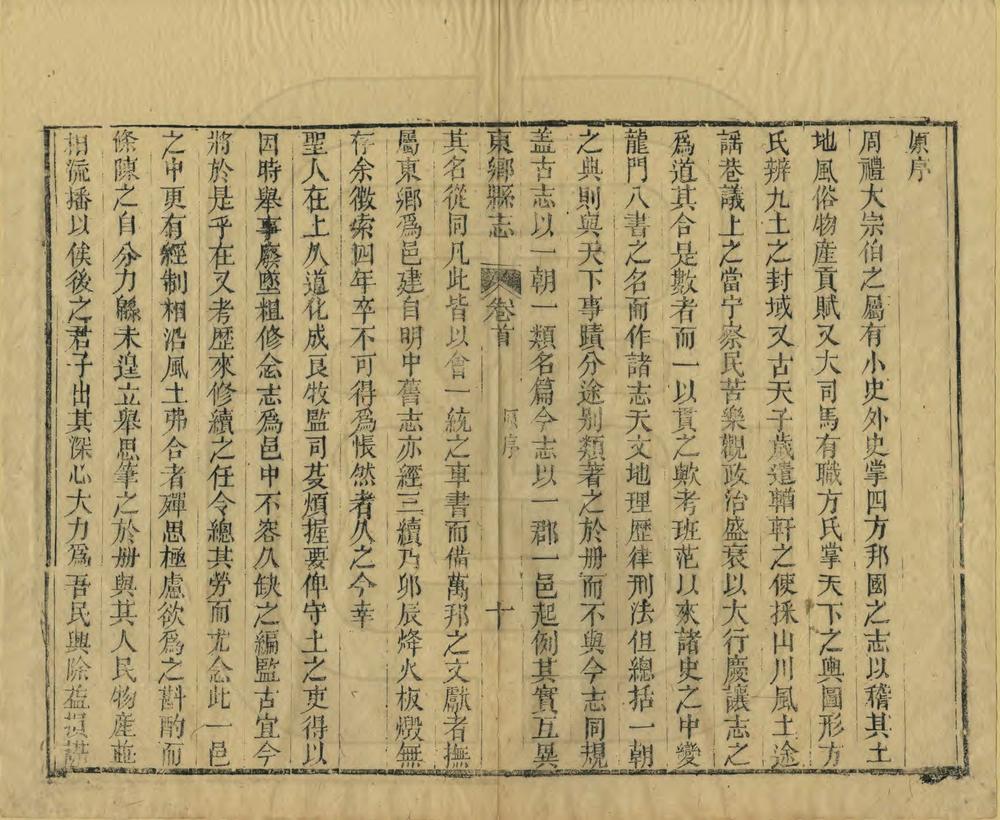 原序
周禮大宗伯之屬有小史外史掌四方邦國之志以稽其土
地風俗物產貢賦又大司馬有職方氏掌天下之輿圖形方
氏辨九土之封域又古天子歲遣輶軒之使採山川風土途
謠巷議上之當宁察民苦樂觀政治盛衰以大行慶讓志之
爲道其合是數者而一以貫之歟考班范以來諸史之中變
龍門八書之名而作諸志天文地理歷律刑法但總括一朝
之典則與天下事蹟分途别類著之於冊而不與今志同規
盖古志以一朝一類名篇今志以一郡一邑起例其實互異
東鄉縣志 卷首 原序 十
其名從同凡此皆以會一統之車書而備萬邦之文獻者撫
屬東鄉爲邑建自明中舊志亦經三續乃卯辰烽火板燬無
存余徵索四年卒不可得爲悵然者久之今幸
聖人在上久道化成良牧監司芟煩握要俾守土之吏得以
因時舉事廢墜粗修念志爲邑中不容久缺之編監古宜今
將於是乎在又考歷來修續之任令總其勞而尤念此一邑
之中更有經制相沿風土弗合者殫思極慮欲爲之斟酌而
條陳之自分力緜未遑立舉思筆之於册與其人民物產並
相流播以俟後之君子出其深心大力爲吾民興除益損講